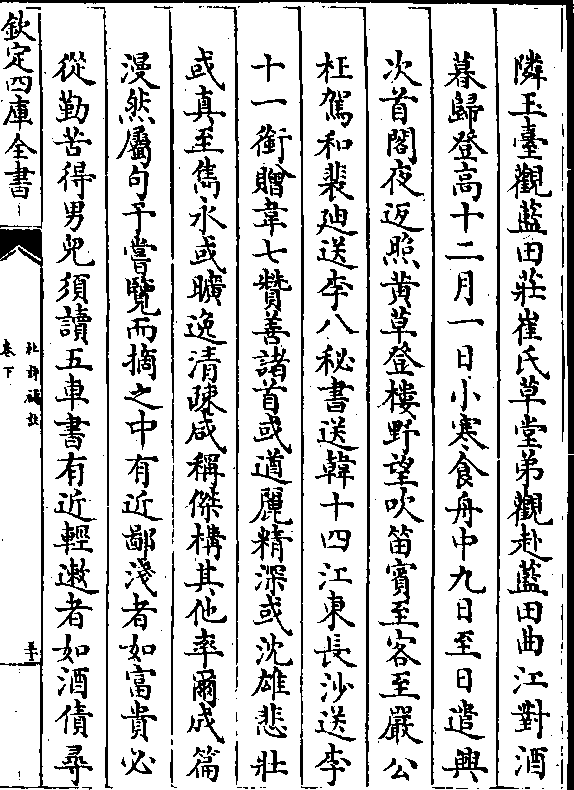 隣玉臺觀藍田莊崔氏草堂弟觀赴藍田曲江對酒
暮歸登高十二月一日小寒食舟中九日至日遣興
次首閣夜返照黃草登樓野望吹笛賓至客至嚴公
枉駕和裴廸送李八秘書送韓十四江東長沙送李
十一銜贈韋七贊善諸首或遒麗精深或沈雄悲壯
或真至雋永或曠逸清疎咸稱傑構其他率爾成篇
漫然屬句予嘗覽而摘之中有近鄙淺者如富貴必
從勤苦得男兒須讀五車書有近輕遬者如酒債尋
欽定四庫全書
卷下